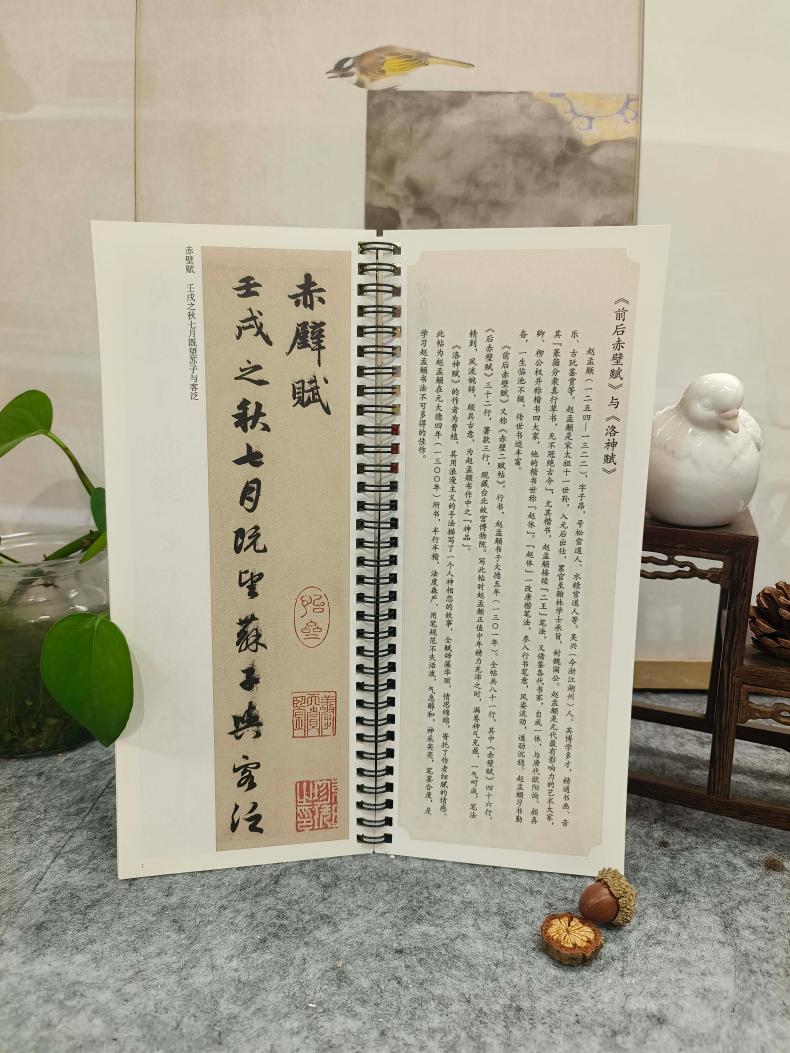 《前后赤壁赋》与《洛神赋》
赵孟頫（一二五四—一三二二），字子昂，号松雪道人、水精宫道人等。吴兴（今浙江湖州）人。其博学多才，精通书画、音
乐、古玩鉴赏等。赵孟頫是宋太祖十一世孙，入元后出仕，累官至翰林学士承旨，封魏国公。赵孟頫是元代最有影响力的艺术大家，
其『篆籀分隶真行草书，无不冠绝古今』，尤其楷书，赵孟頫接续『二王』笔法，又借鉴各代书家，自成一体，与唐代欧阳询、颜真
卿、柳公权并称楷书四大家，他的楷书世称『赵体』。『赵体』一改唐楷笔法，参入行书笔意，风姿流动，遒劲沉稳。赵孟頫习书勤
奋，一生临池不辍，传世书迹丰富。
《前后赤壁赋》又称《赤壁二赋帖》，行书，赵孟頫书于大德五年（一三〇一年）。全帖共八十一行，其中《赤壁赋》四十六行，
《后赤壁赋》三十二行，署款三行，现藏台北故宫博物院。写此帖时赵孟頫正值中年精力充沛之时，满卷神气充盈，一气呵成，笔法
精到，风流婉转，颇具古意，为赵孟頫书作中之『神品』。
《洛神赋》的作者为曹植，其用浪漫主义的手法描写了一个人神相恋的故事，全赋辞藻华丽，情思绵绵，寄托了作者细腻的情感。
此帖为赵孟頫在元大德四年（一三〇〇年）所书，半行半楷，法度森严，用笔规范不失活泼，气息醇和，神采奕奕，笔墨合度，是
学习赵孟頫书法不可多得的佳作。
赤壁賦
壬戌之秋七月既望蘇子與客泛
赤壁赋　壬戌之秋七月既望苏子与客泛
1